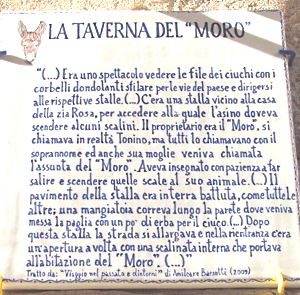 LA TAVERNA DEL "MORO"
"(...) Era uno spettacolo vedere le file dei ciuchi con i
corbelli dondolanti sfilare per le vie del paese e dirigersi
alle rispettive stalle. (...) C'era una stalla vicino alla casa
della zia Rosa, per accedere alla quale l'asino doveva
scendere alcuni scalini. Il proprietario era il "Moro", si
chiamava in realtà Tonino, ma tutti lo chiamavano con il
soprannome ed anche sua moglie veniva chiamata
l'Assunta del "Moro". Aveva insegnato con pazienza a far
salire e scendere quelle scale al suo animale. (...) Il
pavimento della stalla era in terra battuta, come tutte le
altre; una mangiatoia correva lungo la parete dove veniva
messa la paglia con un po' di erba per il ciuco. (...) Dopo
questa stalla la strada si allargava e nella rientranza c'era
un'apertura a volta con una scalinata interna che portava
all'abitazione del "Moro", (...)"
Tratto da: "Viaggio nel passato e dintorni" di Amilcare Barsotti (2009)